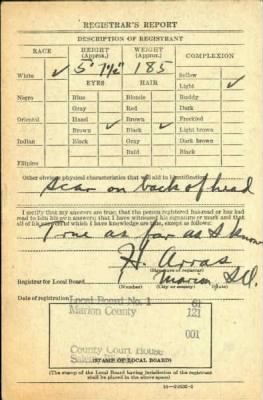 REGISTRAR'S REPORT
DESCRIPTION OF REGISTRANT
RACE HEIGHT (Approx.) WEIGHT (Approx.) COMPLEXION
White ✓ 5' 7½" 185 Sallow
EYES HAIR Light ✓
Negro Blue Blonde Ruddy
Gray Red Dark
Oriental Hazel Brown Freckled
Brown ✓ Black ✓ Light brown
Indian Black Gray Dark brown
Bald Black
Filipino
Other obvious physical characteristics that will aid in identification
Scar on back of head
I certify that my answers are true; that the person registered has read or has had
read to him his own answers; that I have witnessed his signature or mark and that
all of his answers of which I have knowledge are true, except as follows:
True as far as I know
H. Arras
(Signature of registrar)
Registrar for Local Board Marion Ill.
(Number) (City or county) (State)
Date of registration
Local Board No. 1 61
Marion County 121
001
County Court House
(STAMP OF LOCAL BOARD)
(The stamp of the Local Board having jurisdiction of the registrant
shall be placed in the above space)